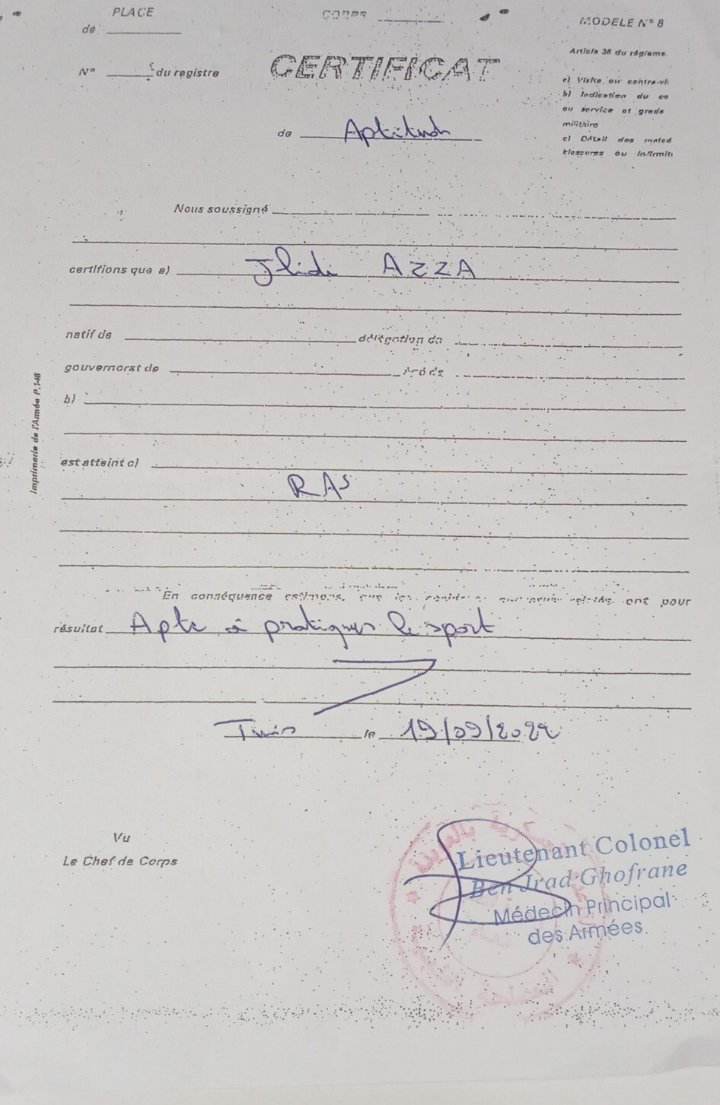 PLACE
CORPS
MODELE N° 8
de
Article 38 du régleme
N° du registre
CERTIFICAT
a) Visite ou contre-vi
b) Indication du co
ou service et grade
militaire
c) Détail des malad
blessures ou infirmit
de Aptitude
Nous soussigné
certifions que a) AZZA
natif de délégation de
gouvernorat de
b)
Imprimerie de l'Armée P.148
est atteint c)
RAS
En conséquence estimons, que les ont pour
résultat Apte à pratiquer le sport
Tunis le 19/09/2022
Vu
Le Chef de Corps
Lieutenant Colonel
Ben Jrad Ghofrane
Médecin Principal
des Armées